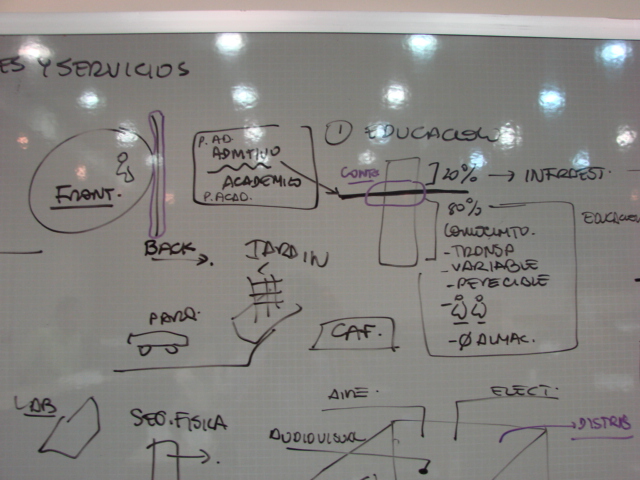 ES Y SERVICIOS
FRONT.
BACK
P. AD.
ADMTIVO
ACADEMICO
P. ACAD.
1 EDUCACION
CONTR
20% → INFRAEST.
80%
CONOCIMTO.
- TRONSP
- VARIABLE
- PERECIBLE
- Ø ALMAC.
EDUCACION
JARDIN
PARQ.
CAF.
LAB
SEG. FISICA
AIRE
ELECT.
AUDIOVISUAL
DISTRIB